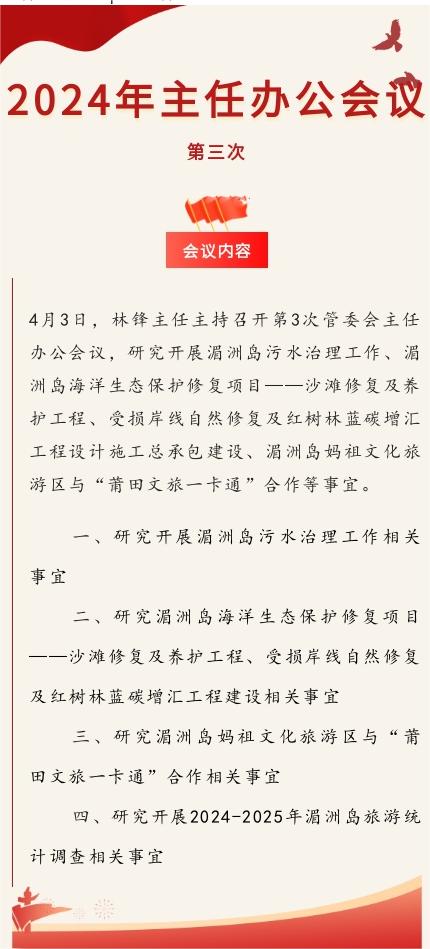 2024年主任办公会议
第三次
会议内容
4月3日，林锋主任主持召开第3次管委会主任
办公会议，研究开展湄洲岛污水治理工作、湄
洲岛海洋生态保护修复项目——沙滩修复及养
护工程、受损岸线自然修复及红树林蓝碳增汇
工程设计施工总承包建设、湄洲岛妈祖文化旅
游区与“莆田文旅一卡通”合作等事宜。
一、研究开展湄洲岛污水治理工作相关
事宜
二、研究湄洲岛海洋生态保护修复项目
——沙滩修复及养护工程、受损岸线自然修复
及红树林蓝碳增汇工程建设相关事宜
三、研究湄洲岛妈祖文化旅游区与“莆
田文旅一卡通”合作相关事宜
四、研究开展2024-2025年湄洲岛旅游统
计调查相关事宜